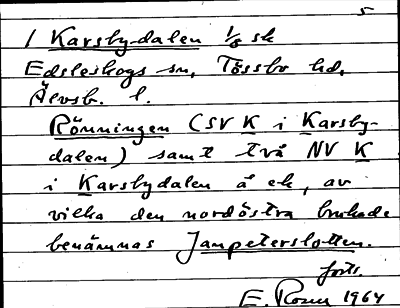 5
1 Karsby-dalen 1/8 sk
Edsleskogs sn, Tössbo hd,
Älvsb. l.
Rönningen (SV K i Karsby-
dalen) samt två NV K
i Karsbydalen å ek, av
vilka den nordöstra brukade
benämnas Janpeterslotten.
forts.
E. 1964